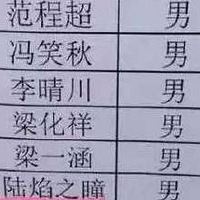 范程超 男
冯笑秋 男
李晴川 男
梁化祥 男
梁一涵 男
陆焰之瞳 男